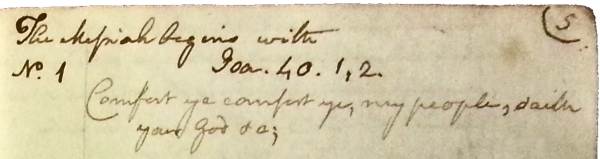 5
The Messiah begins with
No. 1 Isa. 40. 1, 2.
Comfort ye comfort ye, my people, saith
your God &c;